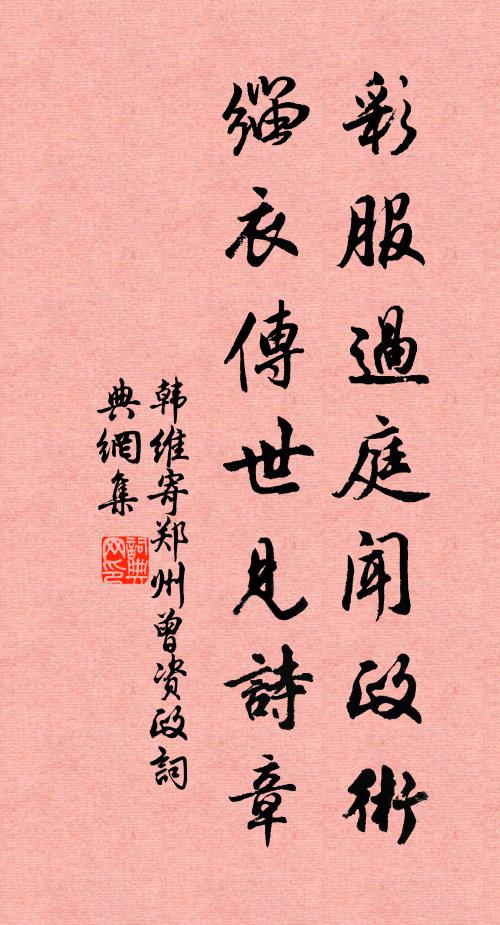 彩服過庭聞政術
緇衣傳世見詩章
韩維寄郑州曾资政詞
典網集
詞典網印